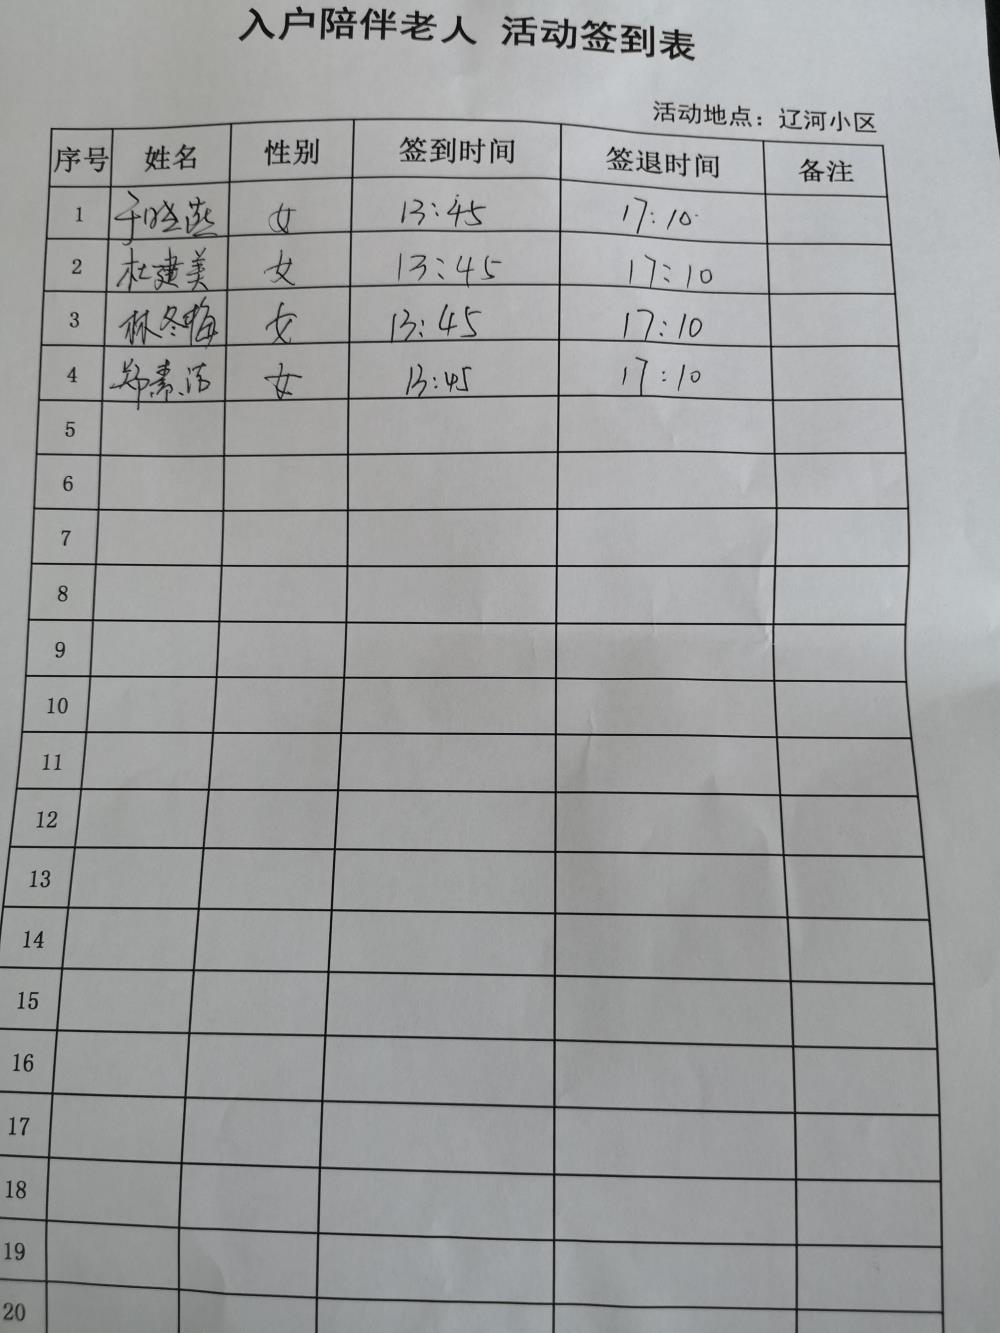 入户陪伴老人 活动签到表
活动地点：辽河小区
序号 姓名 性别 签到时间 签退时间 备注
1 于晓燕 女 13:45 17:10
2 杜建美 女 13:45 17:10
3 林冬梅 女 13:45 17:10
4 郑素洁 女 13:45 17:10
5
6
7
8
9
10
11
12
13
14
15
16
17
18
19
20